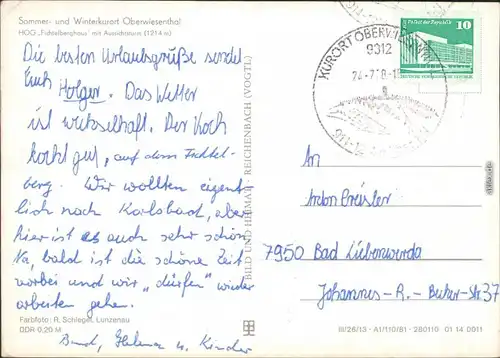 Sommer- und Winterkurort Oberwiesenthal
HOG „Fichtelberghaus" mit Aussichtsturm (1214 m)
Die besten Urlaubsgrüße sendet
Euch Holger. Das Wetter
ist wechselhaft. Der Koch
kocht gut, auf dem Fichtel-
berg. Wir wollten eigent
lich nach Karlsbad, aber
hier ist es auch sehr schön
Na, bald ist die schöne Zeit
vorbei und wir „dürfen" wieder
arbeiten gehen.
Farbfoto: R. Schlegel, Lunzenau
DDR 0,20 M
Bernd, Helena u. Kinder
BILD UND HEIMAT REICHENBACH (VOGTL)
KURORT OBERWIESENTHAL
9312
Palast der Republik 10
An
Anton Preisler
7950 Bad Liebenwerda
Johannes-R.-Becher-Str. 37
III/26/13 A1/110/81 280110 01 14 0911